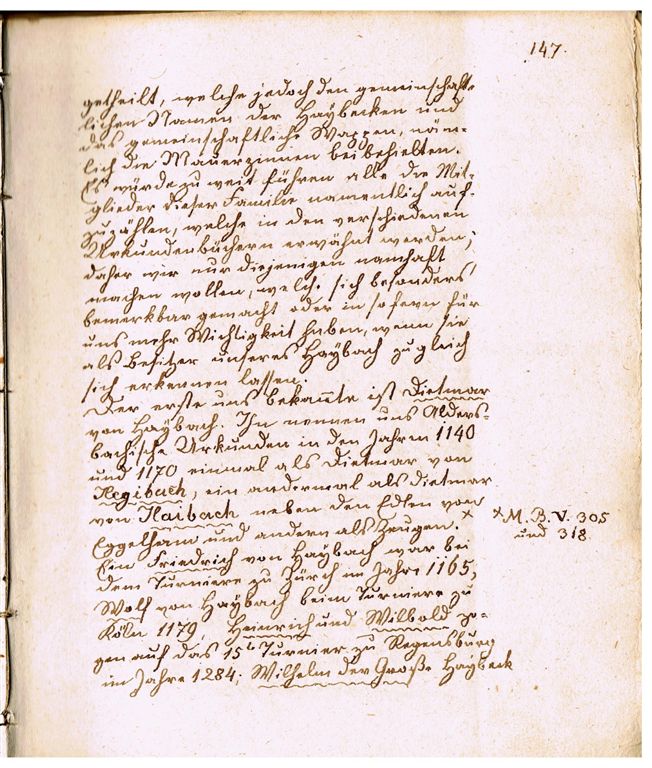 147.
getheilt, welche jedoch den gemeinschaft-
lichen Namen der Haybecken und
das gemeinschaftliche Wappen, näm-
lich die Mauerzinnen beibehielten.
Es würde zu weit führen alle die Mit-
glieder dieser Familie namentlich auf-
zuzählen, welche in den verschiedenen
Urkundenbüchern erwähnt werden,
daher wir nur diejenigen namhaft
machen wollen, welche sich besonders
bemerkbar gemacht oder in sofern für
uns mehr Wichligkeit haben, wenn sie
als Besitzer unseres Haybach zugleich
sich erkennen lassen.
Der erste uns bekannte ist Dietmar
von Haybach. Ihn nennen uns Alders-
bachische Urkunden in den Jahren 1140
und 1170 einmal als Dietmar von
Hegibach, ein andermal als Dietmar
von Haibach neben den Edlen von
Eggelham und andern als Zeugen. x
x M. B. V. 305
und 318
Ein Friedrich von Haybach war bei
dem Turniere zu Zürch im Jahre 1165,
Wolf von Haybach beim Turniere zu
Köln 1179, Heinrich und Wilbold zo-
gen auf das 15t Turnier zu Regensburg
im Jahre 1284; Wilhelm der Große Haybeck